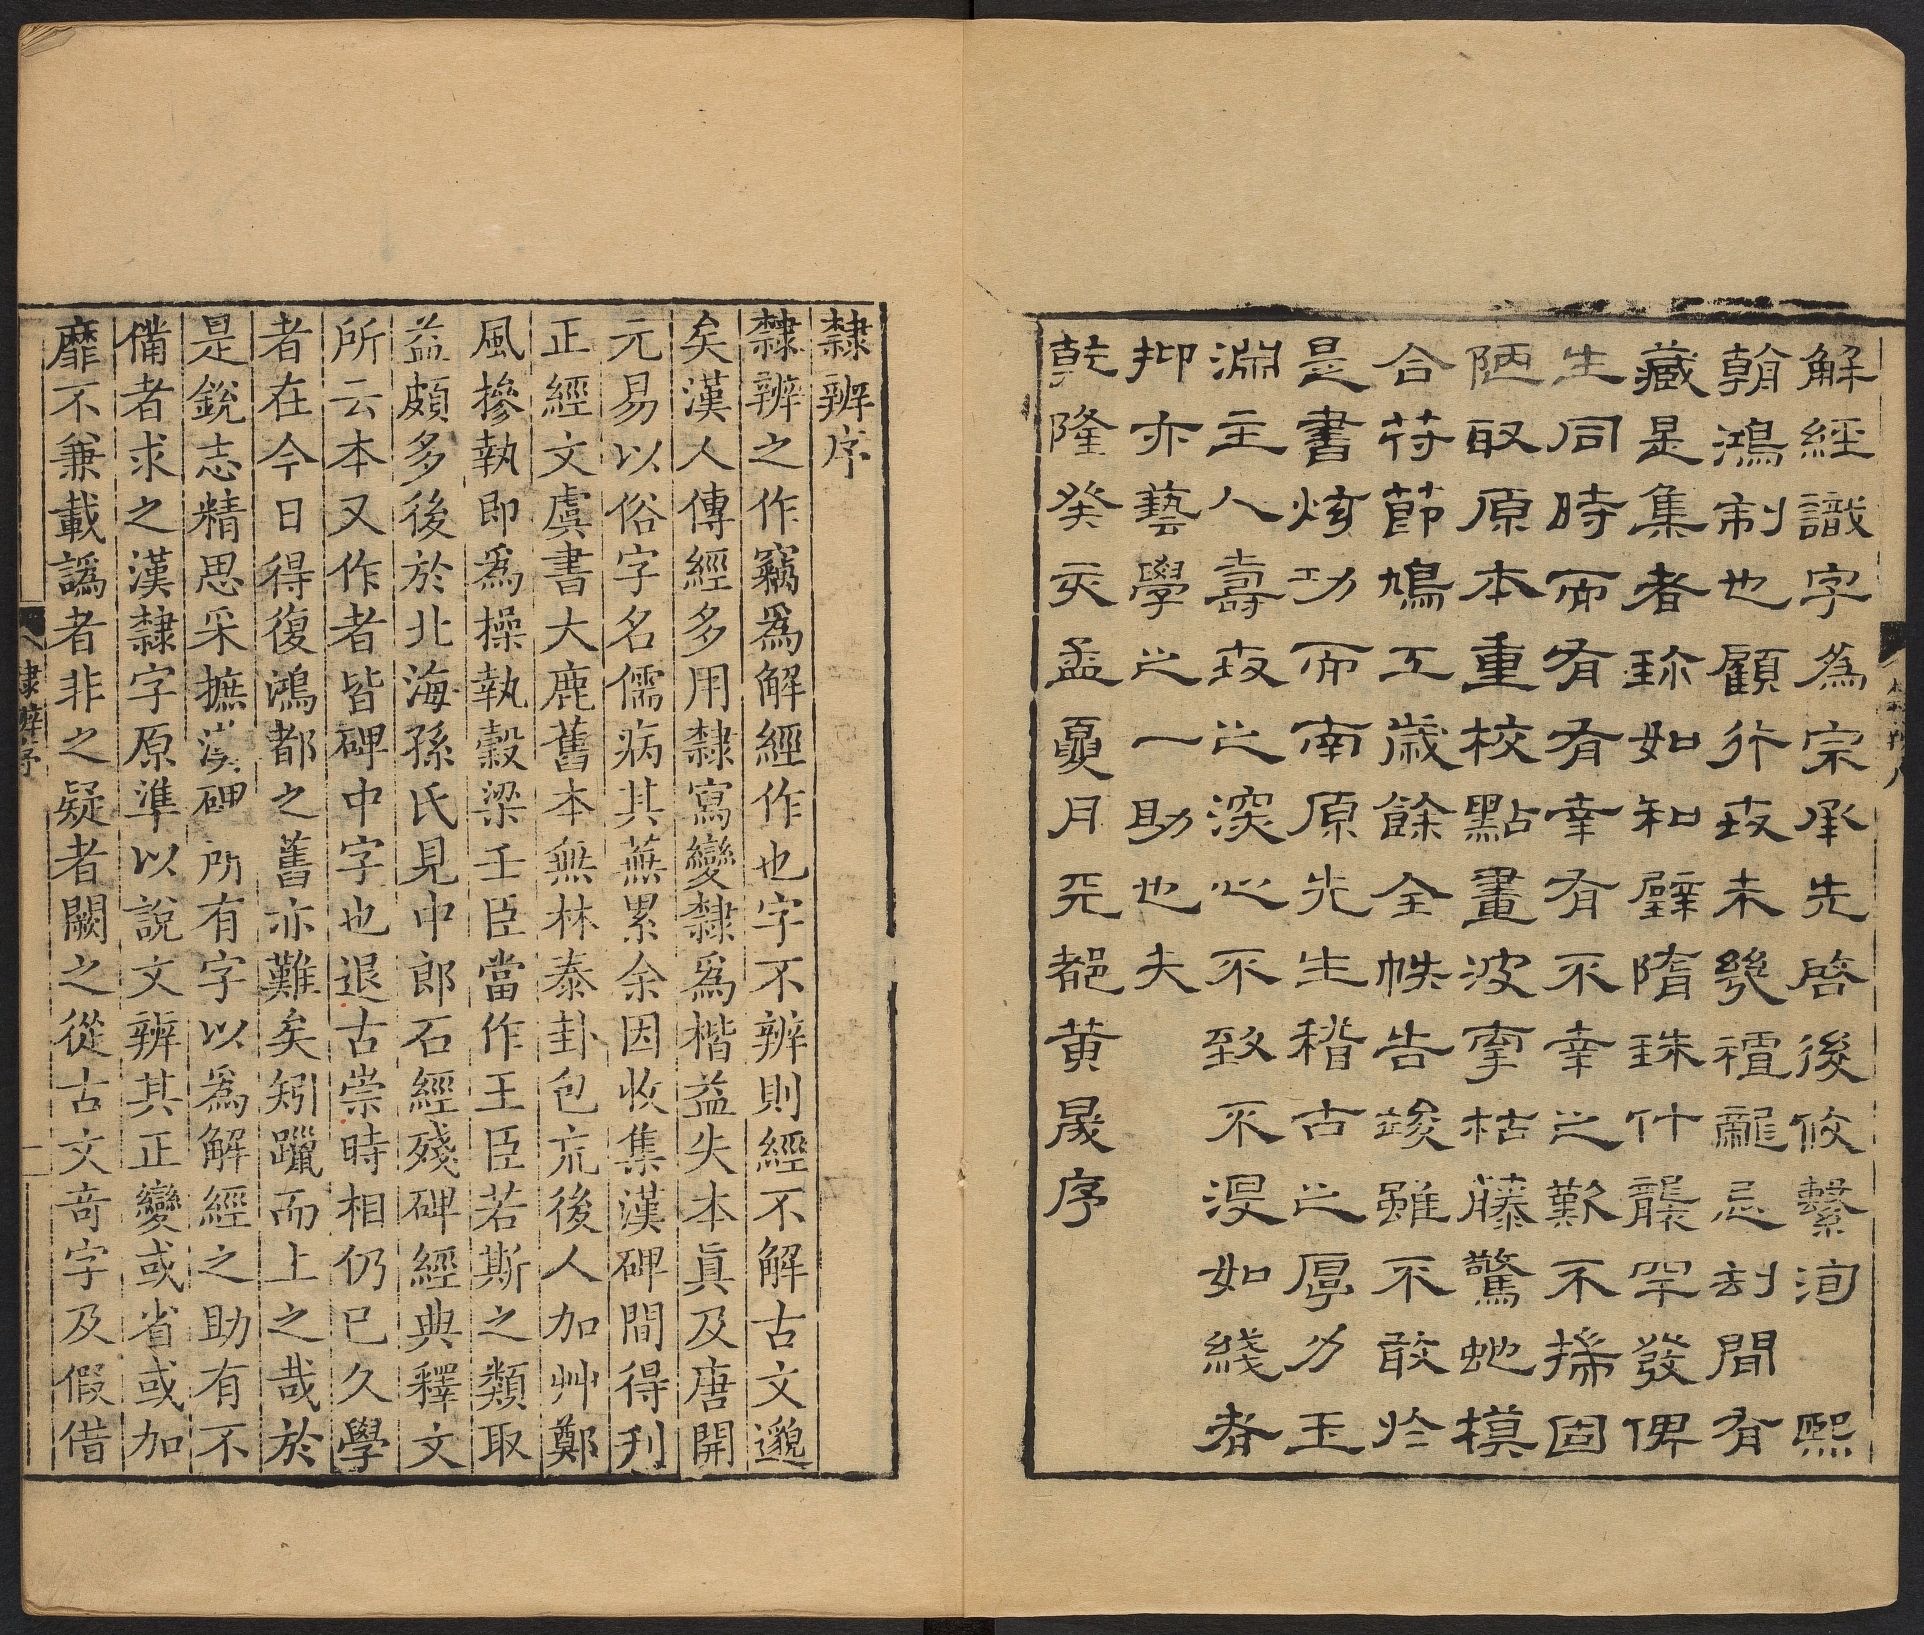 解經識字為宗承先啓後攸繫洵熙
翰鴻制也顧行世未幾禋龗忌剞間有
藏是集者珍如和璧隋珠什襲罕發俾
生同時而有有幸有不幸之歎不揣固
陋取原本重校點畫波掌枯藤驚虵模
合苻節鳩工歲餘全帙告竣雖不敢於
是書炫功而南原先生稽古之厚力玉
淵主人壽世之深心不致不沒如綫者
抑亦藝學之一助也夫
乾隆癸亥孟夏月天都黄晟序
隸辨序
隸辨之作竊爲解經作也字不辨則經不解古文邈
矣漢人傳經多用隸寫變隸爲楷益失本眞及唐開
元易以俗字名儒病其蕪累余因收集漢碑間得刋
正經文虞書大鹿舊本無林泰卦包巟後人加艸鄭
風摻執即爲操執糓梁壬臣當作王臣若斯之類取
益頗多後於北海孫氏見中郎石經殘碑經典釋文
所云本又作者皆碑中字也退古崇時相仍已久學
者在今日得復鴻都之舊亦難矣矧躐而上之哉於
是銳志精思采摭漢碑所有字以爲解經之助有不
備者求之漢隸字原準以說文辨其正變或省或加
靡不兼載譌者非之疑者闕之從古文奇字及假借
隸辨序
一